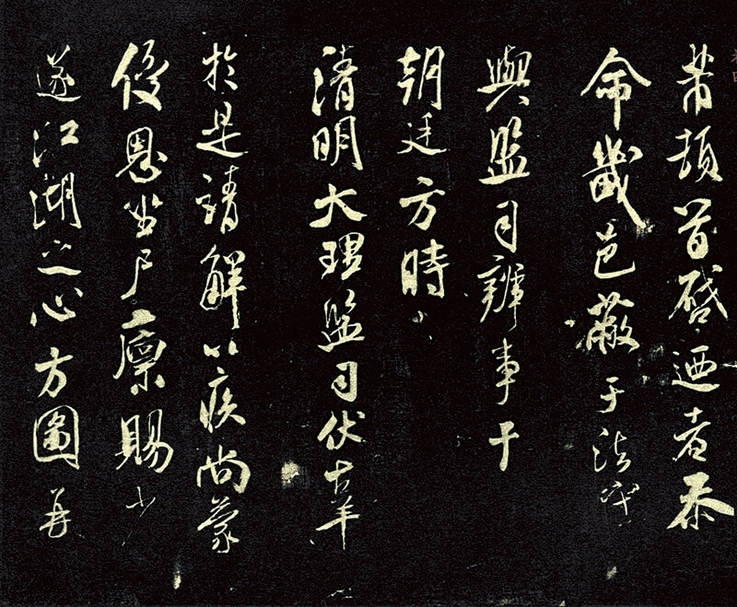 芾頓首啓迺者忝
命畿邑蔽于法守
與監司辨事于
朝廷方時
清明大理監司伏辜
於是請解以疾尚蒙
優恩坐尸廩賜少
遂江湖之心方圖再